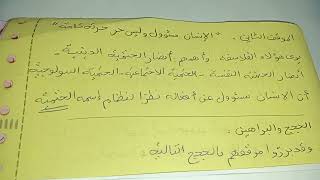 الموقف الثاني: "الإنسان مسؤول وليس حر حرية كاملة"
يرى هؤلاء الفلاسفة وأهمهم أنصار الحتمية الدينية -
أنصار الحتمية النفسية - الحتمية الاجتماعية - الحتمية البيولوجية
أن الانسان مسؤول عن أفعاله نظرا لنظام اسمه الحتمية
الحجج والبراهين:
وقد برروا موقفهم بالحجج التالية